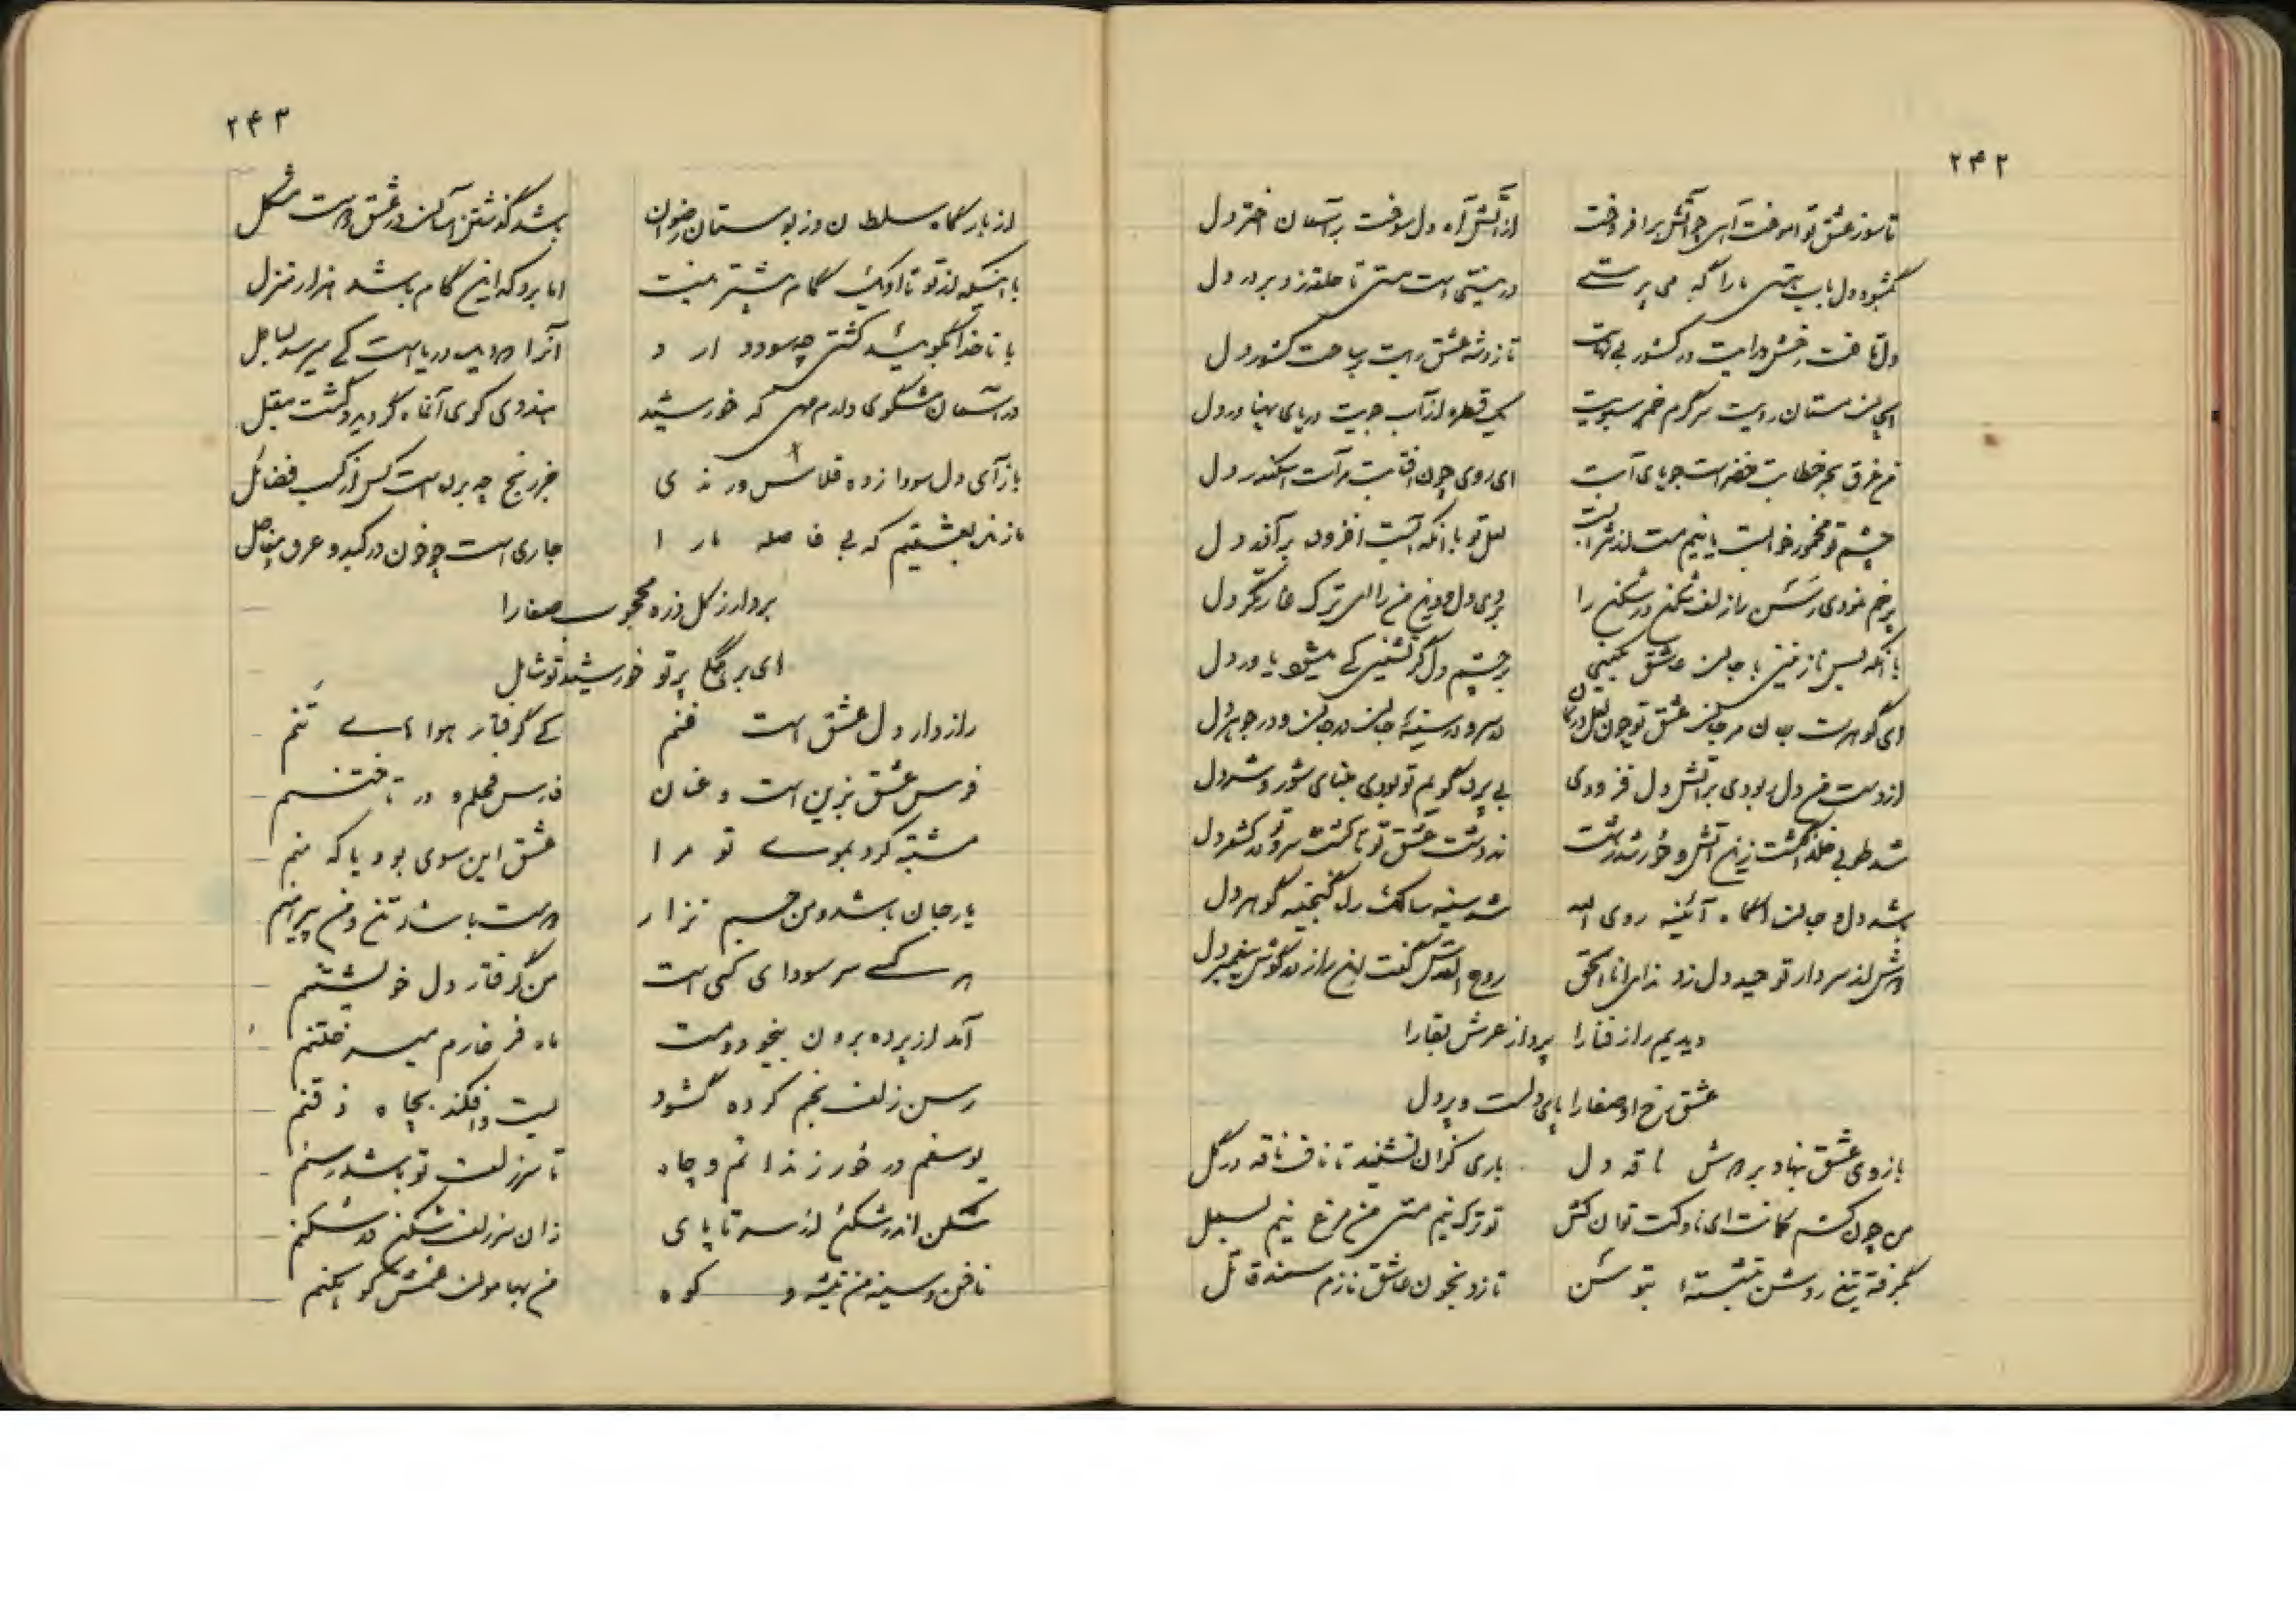 ۲۴۲
تا سوز عشق تو آموخت آهی چو آتش برافروخت از آتش آه دل سوخت بر آسمان اختر دل
بگشود دل باب هستی ما را که می پرستی در نیستی است هستی تا حلقه زد بر در دل
دل تافت رخش درایت در کشور بی نهایت تا زد شه عشق رایت به ساحت کشور دل
ای جان مستان رویت سرگرم خم سبویت یک قطره از آب جویت دریای پهناور دل
من غرق بحر خطابت خضر است جویای آبت ای روی چون آفتابت مرآت اسکندر دل
چشم تو مخمور خوابست یا نیم مست از شرابست لعل تو با آنکه آبست افزود بر آذر دل
پر خم نمودی رسن را زلف شکن در شکن را بردی دل و دین من را ای ترک غارتگر دل
با آنکه بس نازنینی با جان عاشق بچشم دل گر نشینی کی میشود یاور دل
ای گوهرت جان مرجان عشق تو چون لعل در کان در سر و در سینه جان در جان و در جوهر دل
از دست من دل ربودی بر آتش دل فزودی بی پرده گویم تو بودی بنای شور و شر دل
شد طوبی خلد انگشت زین آتش و خور شدش پشت در دشت عشق تو تا کشت سرو تو کشور دل
شد دل و جان آگاه آئینه روی الله شد سینه سالک راه گنجینه گوهر دل
دوش از سر دار توحید دل زد ندای انا الحق روح القدس گفت این راز در گوش پیغمبر دل
دیدیم راز فنا را پرواز عرش بقا را
عشق رخ او صفا را پای دلست و پر دل
بازوی عشق نهاد بر دوش ناقه دل باری گران نشیند تا ناف ناقه در گل
من چون کشم کمانت ای ناوکت توان کش تو ترک نیم مستی من مرغ نیم بسمل
بگرفته تیغ روشن بنشسته توسن تازد بخون عاشق نازم سمند قاتل
۲۴۳
از بارگاه سلطان وز بوستان رضوان باشد گذشتن آسان در عشق دوست مشکل
با اینکه از تو تا او یک گام بیشتر نیست اما برو که این گام باشد هزار منزل
با ناخدا بگوئید کشتی چه سود دارد آنرا که دیده دریاست کی میرسد بساحل
در آسمان مشگوی دارم مهی که خورشید هندوی کوی آن ماه گردید و گشت مقبل
بازآی دل سودازده قلاش ورندی جز رنج چه برده است کس از کسب فضائل
ما زنده بعشقیم که بی فاصله ما را جاری است چو خون در کبد و عرق و مفاصل
بردار ز گل ذره محجوب صفا را
ای بر گل پرتو خورشید تو شامل
رازدار دل عشق است فنم کی گرفتار هوای تنم
فرس عشق بزین است و عنان فارس محلم و در تاختنم
مشتبه کرد بموی تو مرا عشق این موی بود یا که منم
یار جان باشد و من جسم نزار دوست باشد تن و من پیرهنم
هر کسی سر سودای کسی است من گرفتار دل خویشتنم
آمد از پرده برون بیخود و مست ماه فرخارم میر ختنم
رسن زلف بخم کرده گشود بست و افکند بچاه ذقنم
یوسفم در خور زندانم و چاه تا سر زلف تو باشد رسنم
شکن اندر شکنم از سر تا پای زان سر زلف شکن در شکنم
ناخن و سینه من تیشه و کوه من بهامون غمش کوه کنم